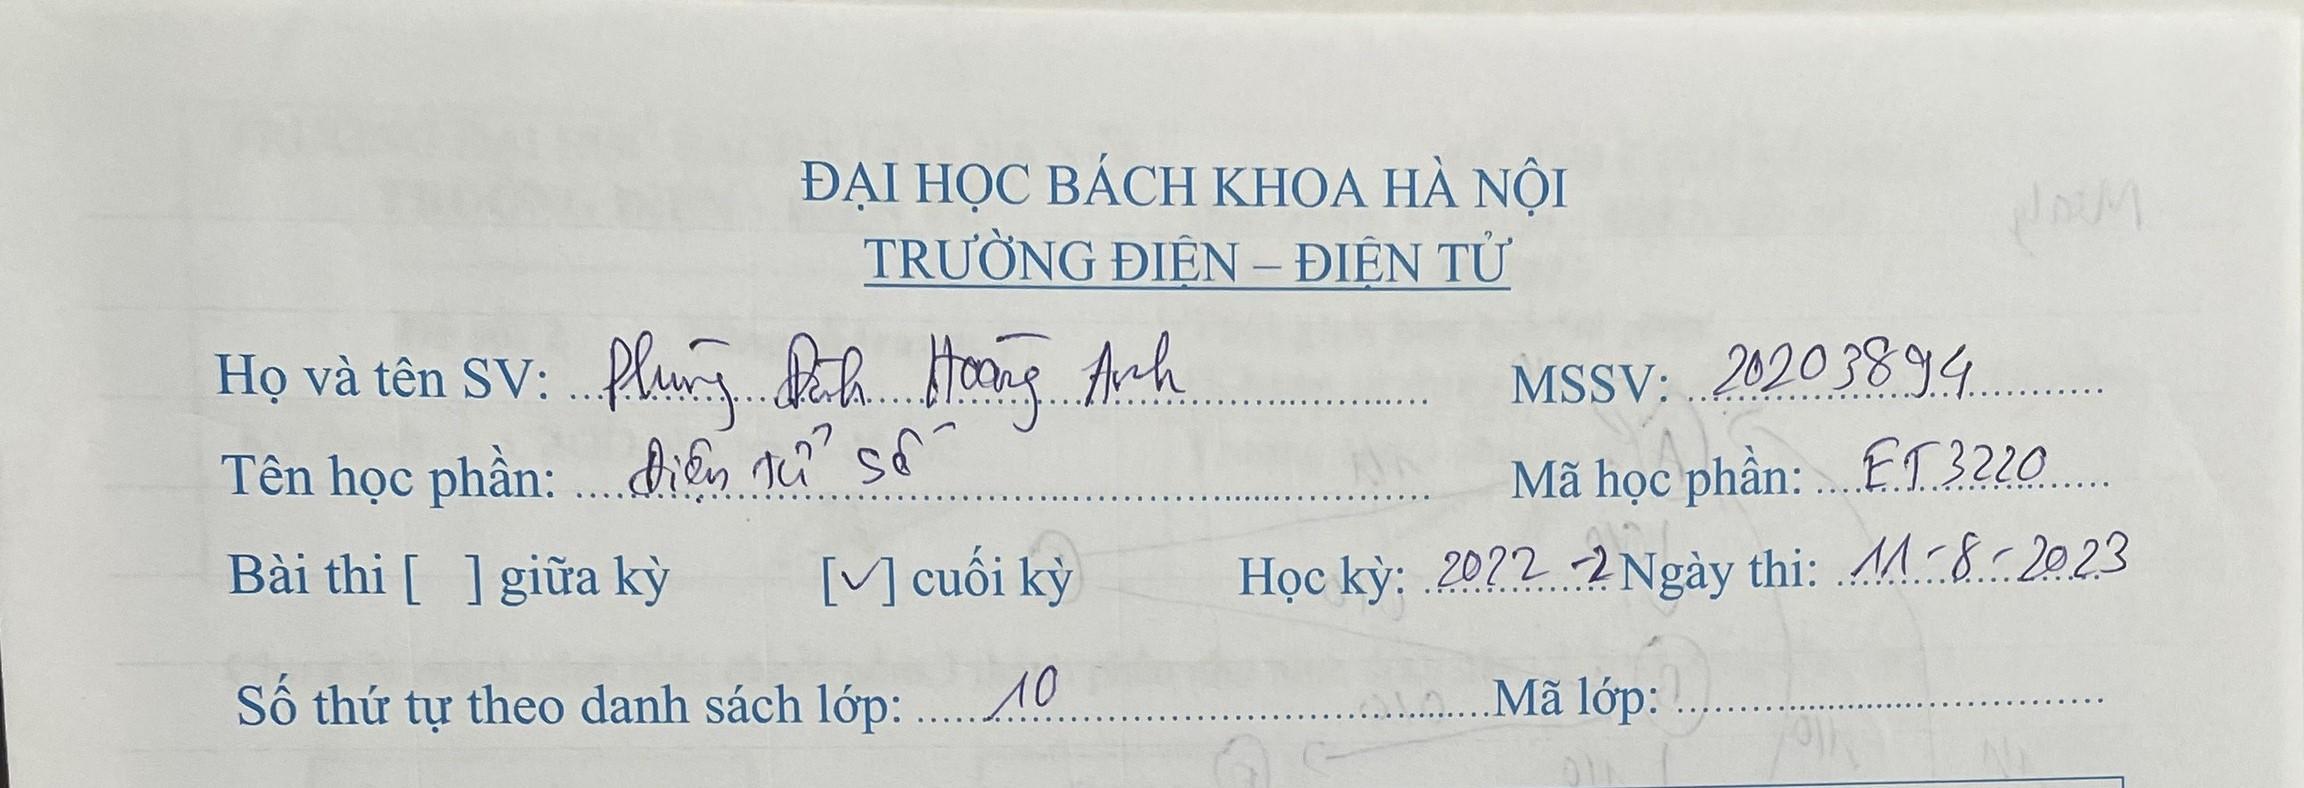 ĐẠI HỌC BÁCH KHOA HÀ NỘI
TRƯỜNG ĐIỆN – ĐIỆN TỬ
Họ và tên SV: Phùng Đình Hoàng Anh MSSV: 20203894
Tên học phần: Điện tử số Mã học phần: ET3220
Bài thi [ ] giữa kỳ [✓] cuối kỳ Học kỳ: 2022-2 Ngày thi: 11-8-2023
Số thứ tự theo danh sách lớp: 10 Mã lớp: